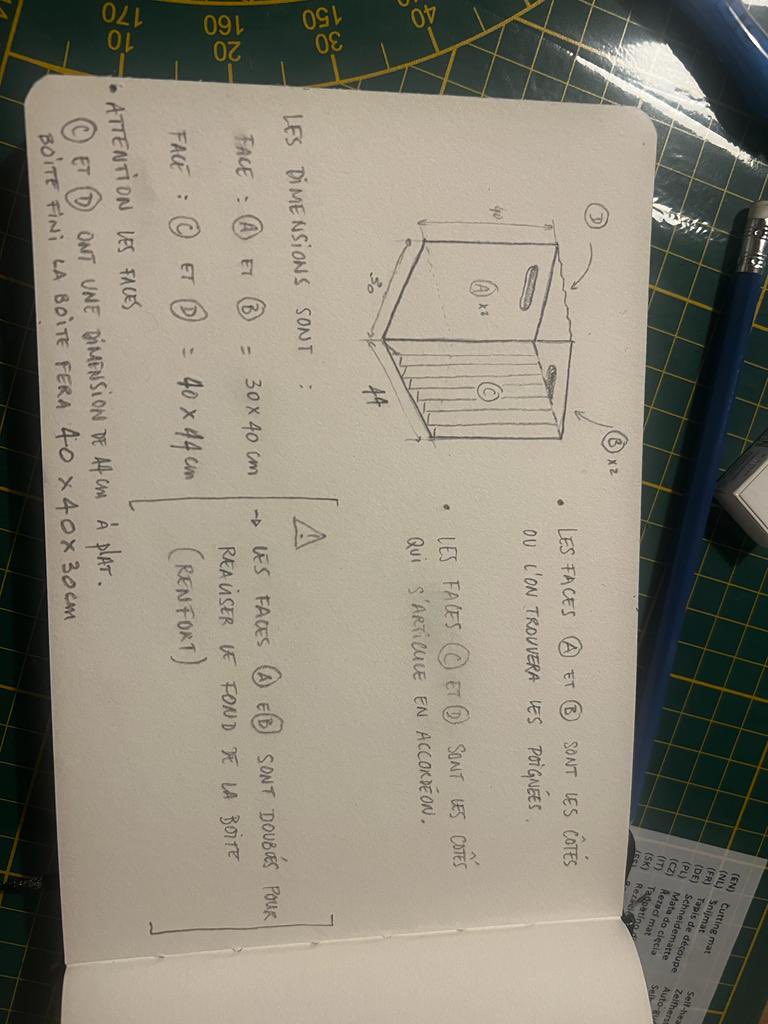 D
B x2
40
A x2
C
30
44
• LES FACES A ET B SONT LES CÔTÉS
OU L'ON TROUVERA LES POIGNÉES.
• LES FACES C ET D SONT LES CÔTÉS
QUI S'ARTICULE EN ACCORDÉON.
LES DIMENSIONS SONT :
FACE : A ET B = 30 x 40 cm
FACE : C ET D = 40 x 44 cm
→ LES FACES A E B SONT DOUBLÉS POUR
REALISER LE FOND DE LA BOITE
(RENFORT)
• ATTENTION LES FACES
C ET D ONT UNE DIMENSION DE 44 cm À PLAT.
BOÎTE FINI LA BOÎTE FERA 40 x 40 x 30 cm
170
160
150
10
20
30
40
(EN) Cutting mat
(NL) Snijmat
(FR) Tapis de découpe
(DE) Schneidematte
(PL) Mata do cięcia
(CZ) Řezací mat
(IT)
(SK)